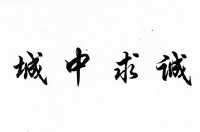 城中求诚